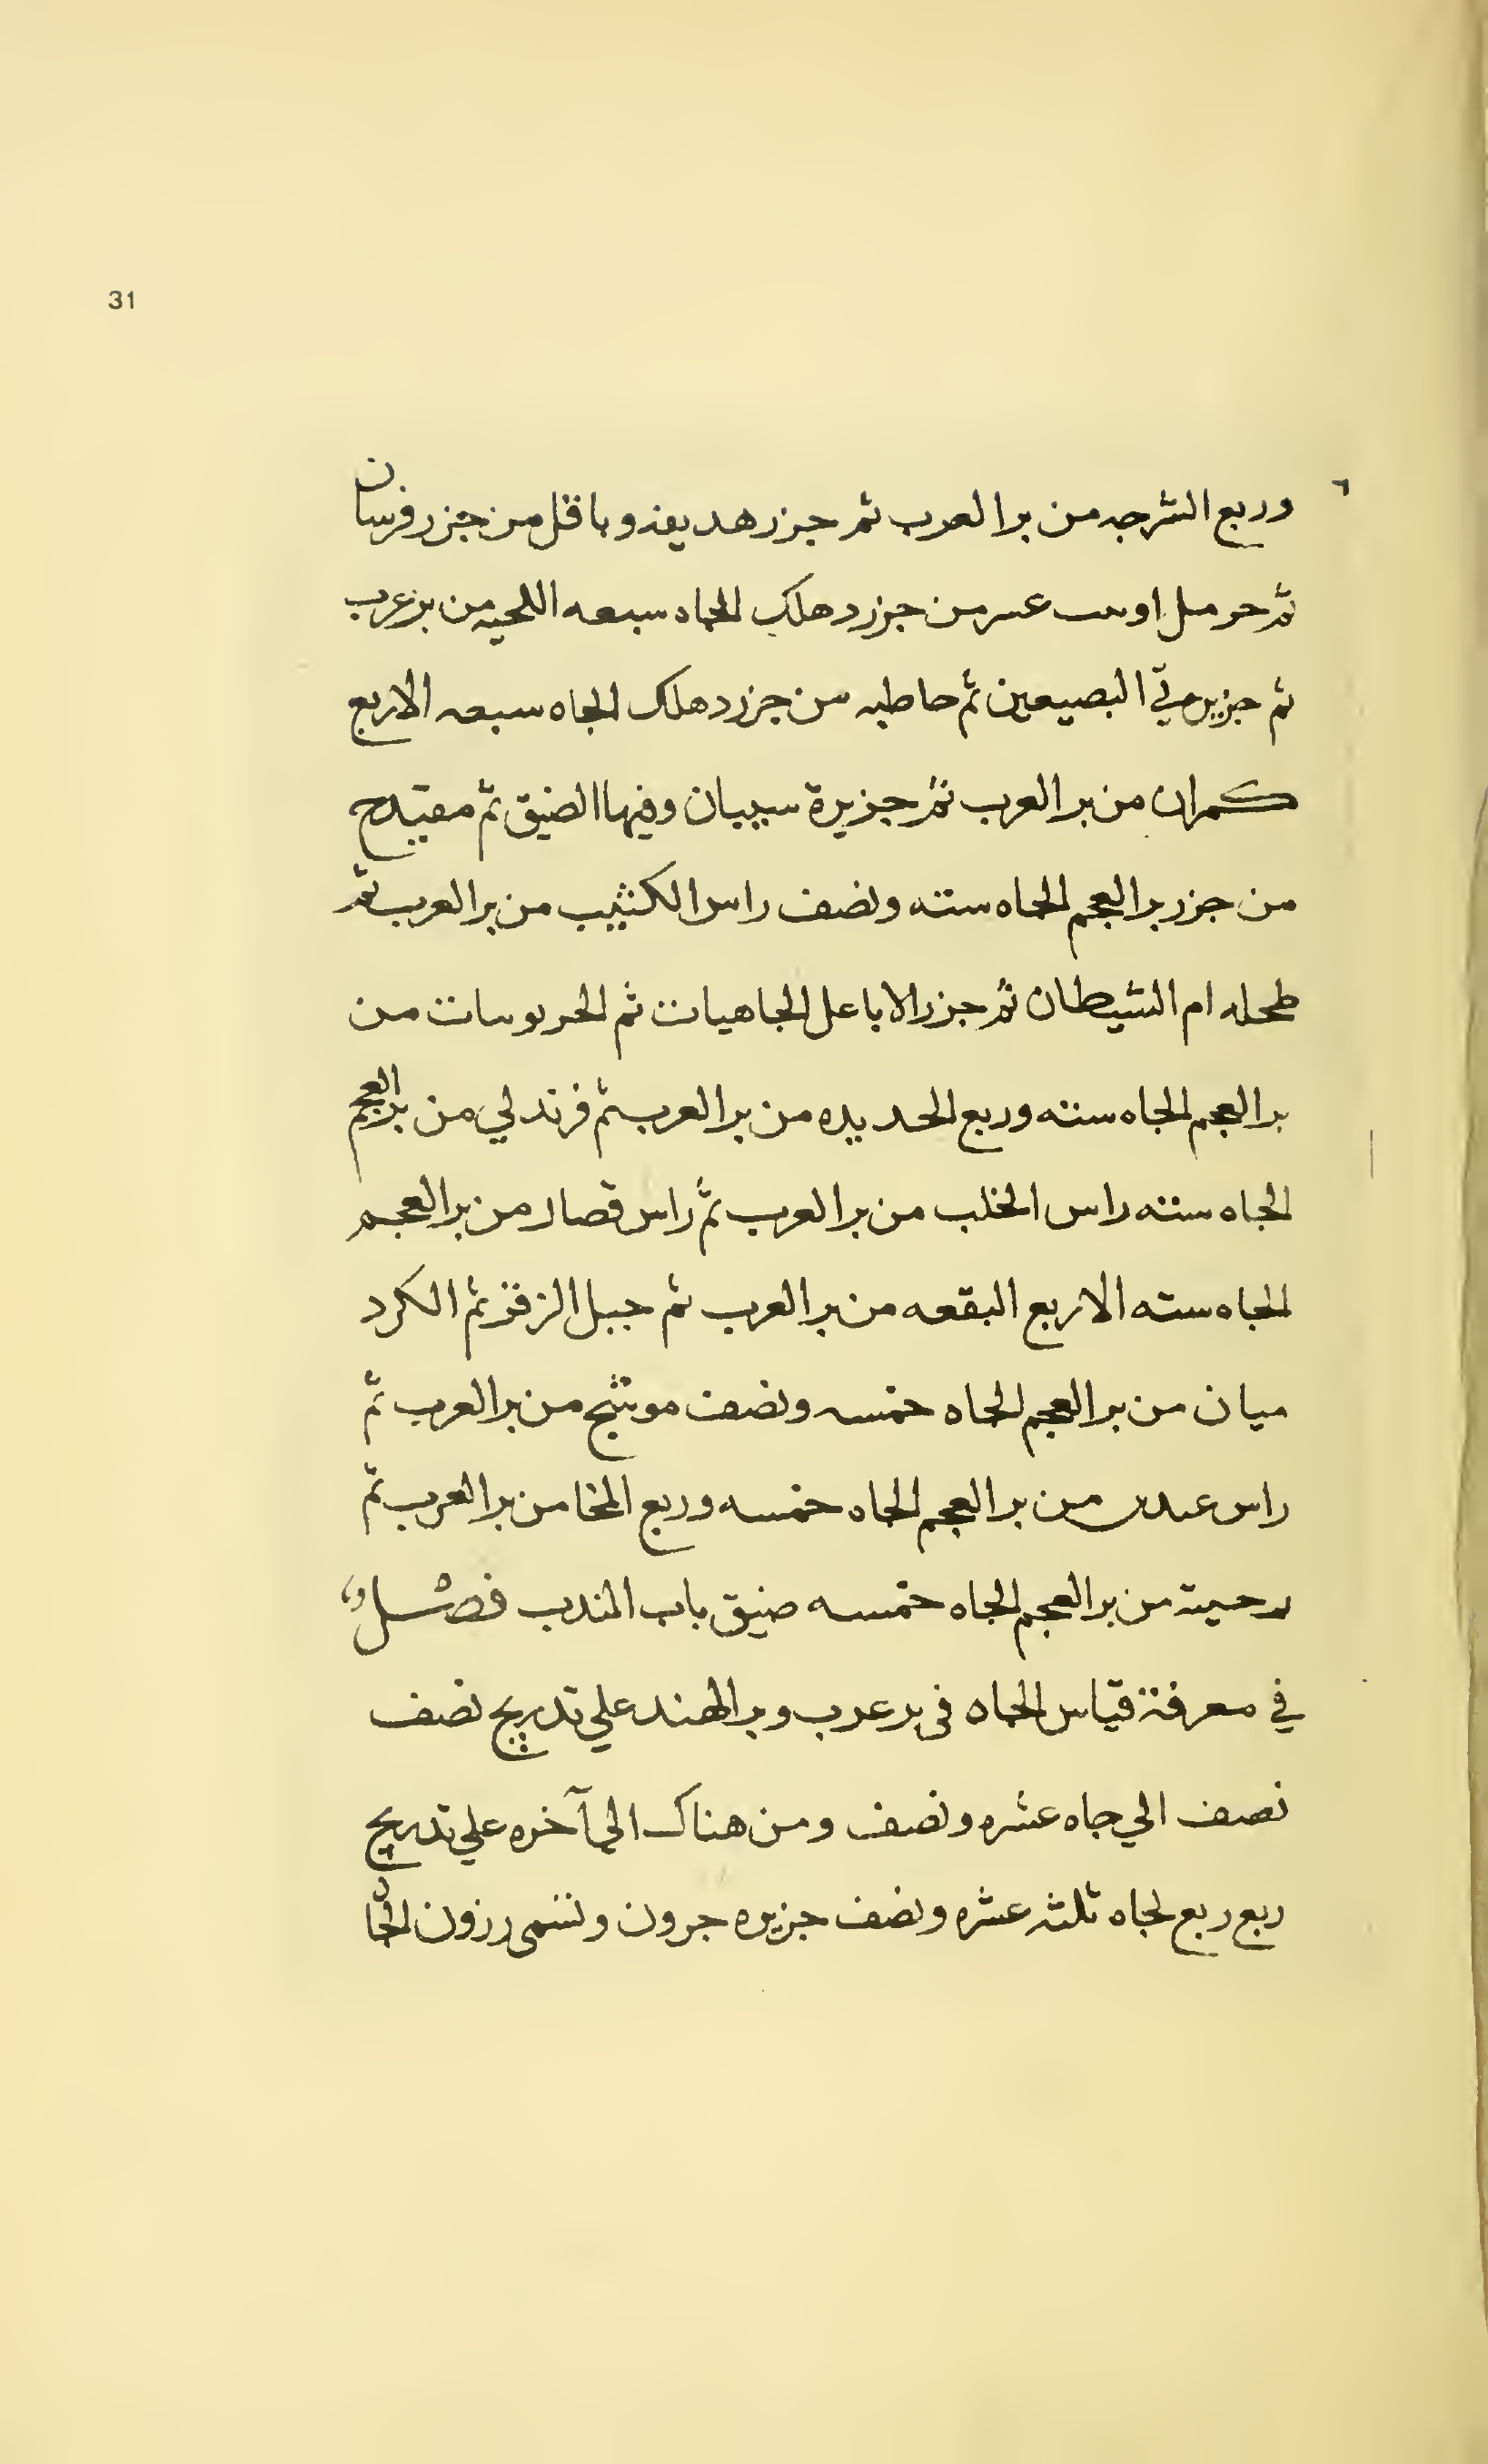 31
وربع الشرجه من بر العرب ثم جزر هديفه وباقل من جزر فرسان
ثم حر من جزر دهلك الجاه سبعه اللحيه من بر عرب
ثم البصيعين ثم حاطبه من جزر دهلك الجاه سبعه الا ربع
كمران من بر العرب ثم جزيرة سيبان وفيها الضيق ثم مقيدح
من جزر بر العجم الجاه سته ونصف راس الكثيب من بر العرب ثم
طحله ام الشيطان ثم جزر الاباعل الجاهيات ثم من
بر العجم الجاه سته وربع الحديده من بر العرب ثم فرندلي من بر العجم
الجاه سته راس الخلب من بر العرب ثم راس قصار من بر العجم
الجاه سته الا ربع البقعه من بر العرب ثم جبل الزقز ثم الكرد
ميان من بر العجم الجاه خمسه ونصف موشج من بر العرب ثم
راس من بر العجم الجاه خمسه وربع المخا من بر العرب ثم
من بر العجم الجاه خمسه ضيق باب المندب فصل
في معرفة قياس الجاه في بر عرب وبر الهند علي تدريج نصف
نصف الي جاه عشره ونصف ومن هناك الي آخره علي تدريج
ربع ربع لجاه ثلثه عشره ونصف جزيره جرون وتسمى